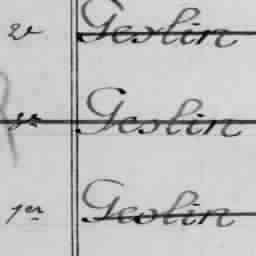 2e Geslin
Geslin
1er Geslin